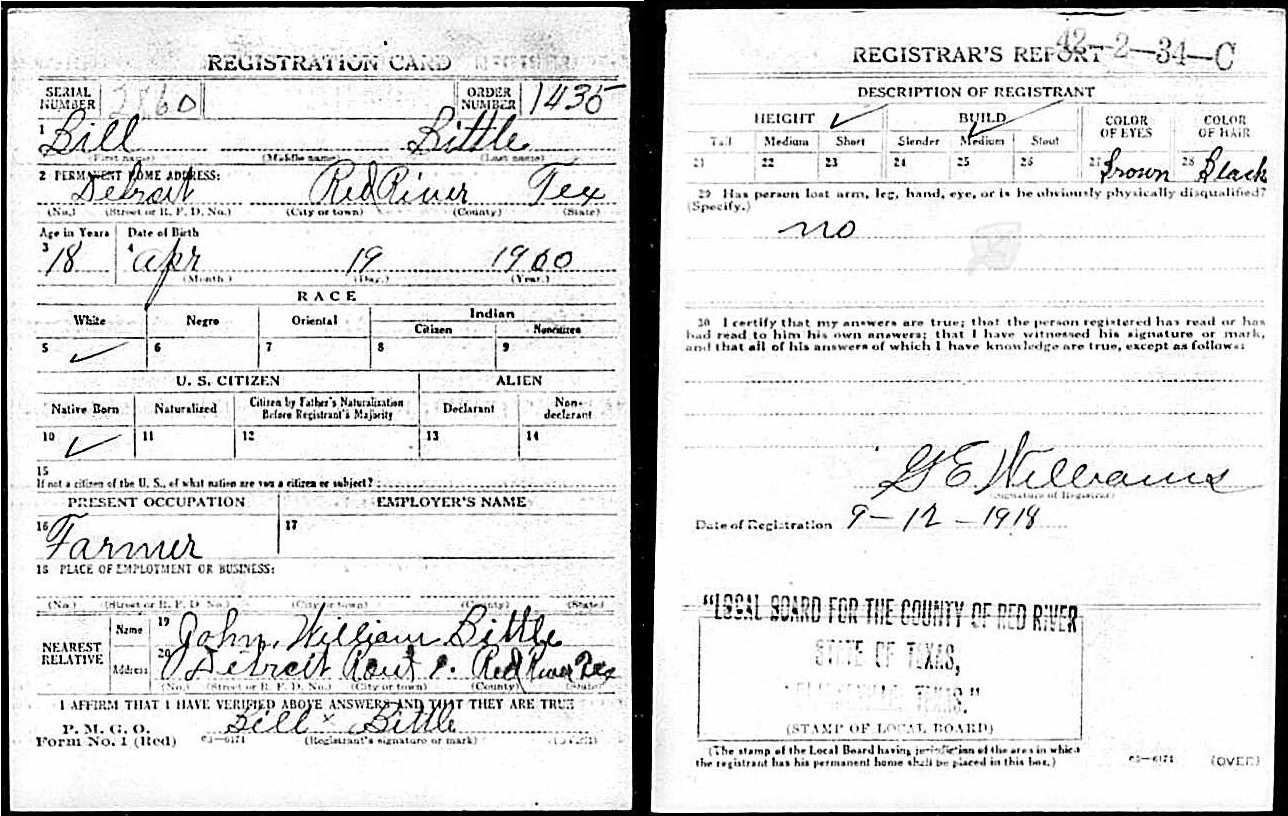 REGISTRATION CARD
SERIAL NUMBER 2860 ORDER NUMBER 1435
1 Bill Bittle
(First name) (Middle name) (Last name)
2 PERMANENT HOME ADDRESS:
Detroit Red River Tex
(No.) (Street or R. F. D. No.) (City or town) (County) (State)
Age in Years Date of Birth
3 18 4 Apr 19 1900
(Month.) (Day.) (Year.)
RACE
White Negro Oriental Indian
Citizen Noncitizen
5 ✓ 6 7 8 9
U. S. CITIZEN ALIEN
Native Born Naturalized Citizen by Father's Naturalization Before Registrant's Majority Declarant Non-declarant
10 ✓ 11 12 13 14
15
If not a citizen of the U. S., of what nation are you a citizen or subject?
PRESENT OCCUPATION EMPLOYER'S NAME
16 Farmer 17
18 PLACE OF EMPLOYMENT OR BUSINESS:
(No.) (Street or R. F. D. No.) (City or town) (County) (State)
NEAREST RELATIVE Name 19 John William Bittle
Address 20 Detroit Red River Tex
(No.) (Street or R. F. D. No.) (City or town) (County) (State)
I AFFIRM THAT I HAVE VERIFIED ABOVE ANSWERS AND THAT THEY ARE TRUE
P. M. G. O.
Form No. 1 (Red) 03-6171 Bill x Bittle
(Registrant's signature or mark) (OVER)
42-2-34-C
REGISTRAR'S REPORT
DESCRIPTION OF REGISTRANT
HEIGHT BUILD COLOR OF EYES COLOR OF HAIR
Tall Medium Short Slender Medium Stout
21 22 23 ✓ 24 25 ✓ 26 27 Brown 28 Black
29 Has person lost arm, leg, hand, eye, or is he obviously physically disqualified?
(Specify.)
no
30 I certify that my answers are true; that the person registered has read or has
had read to him his own answers; that I have witnessed his signature or mark,
and that all of his answers of which I have knowledge are true, except as follows:
G E Williams
(Signature of Registrar)
Date of Registration 9-12-1918
"LOCAL BOARD FOR THE COUNTY OF RED RIVER
STATE OF TEXAS,
TEXAS."
(STAMP OF LOCAL BOARD)
(The stamp of the Local Board having jurisdiction of the area in which
the registrant has his permanent home shall be placed in this box.)
03-6171 (OVER)